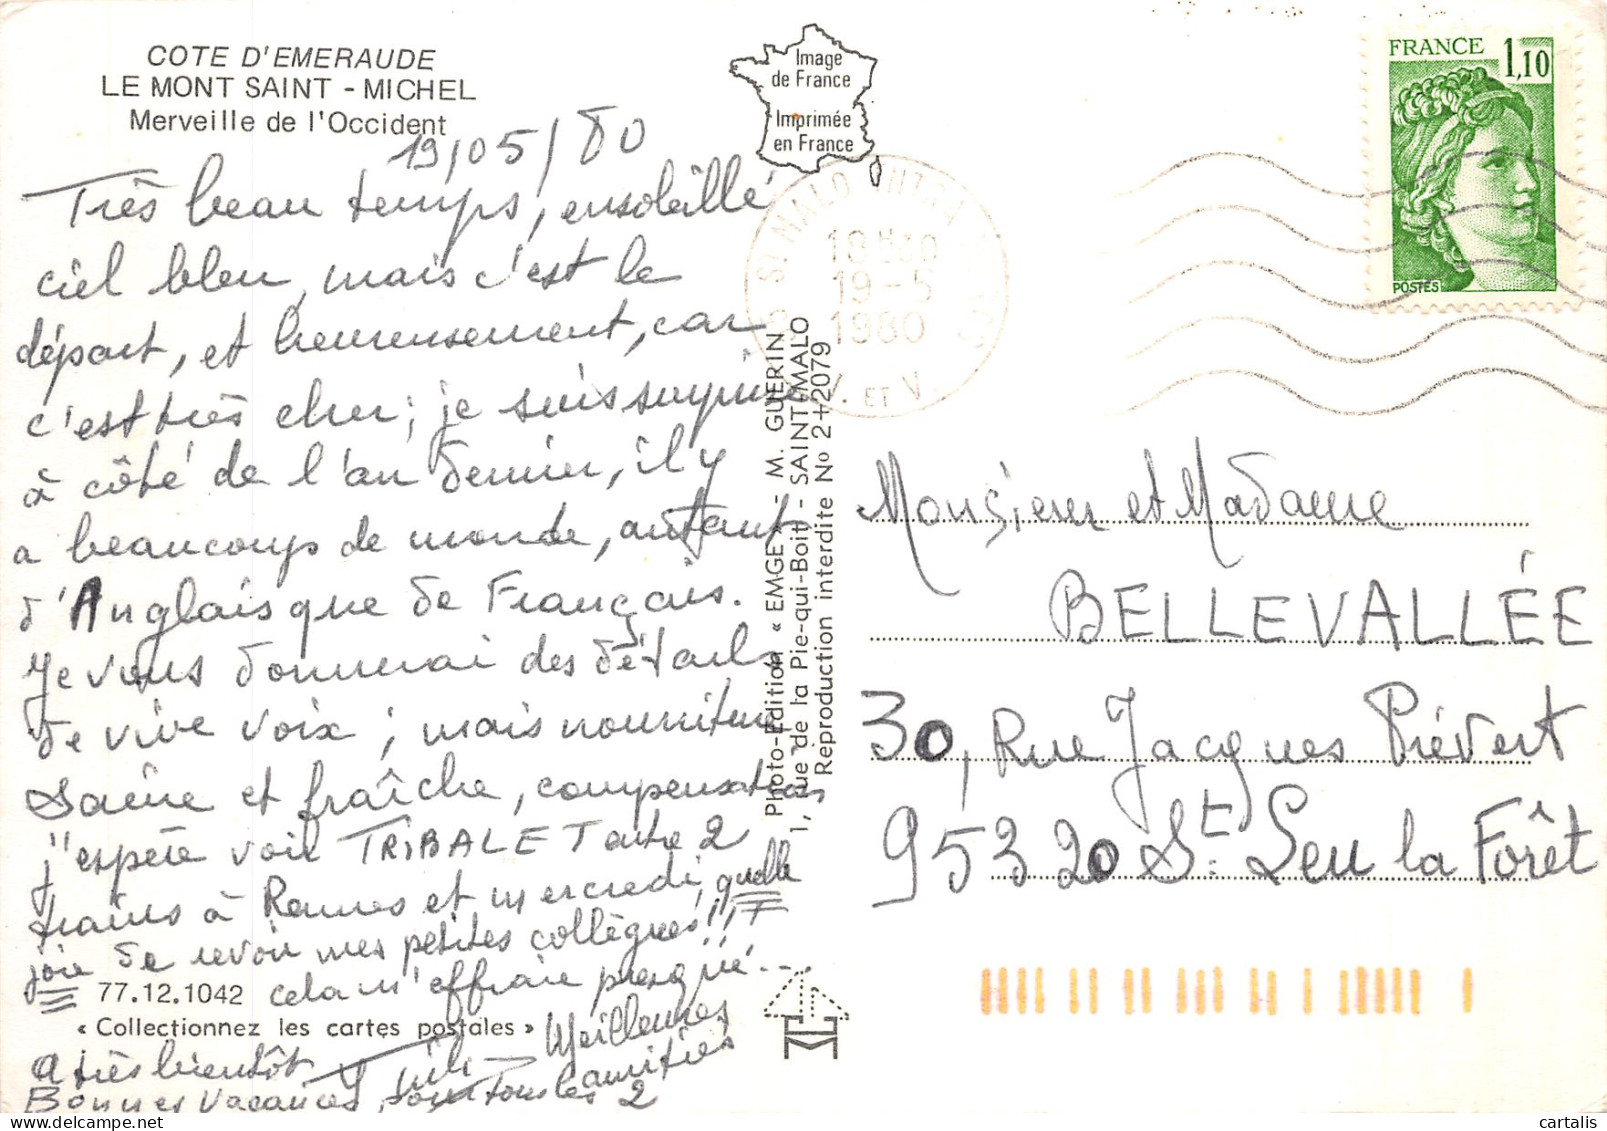 COTE D'EMERAUDE
LE MONT SAINT - MICHEL
Merveille de l'Occident
19/05/80
Très beau temps, ensoleillé
ciel bleu, mais c'est le
départ, et heureusement, car
c'est très cher ; je suis surprise
à côté de l'an dernier, il y
a beaucoup de monde, autant
d'Anglais que de Français.
Je vous donnerai des détails
de vive voix ; mais nourriture
saine et fraîche, compensation
j'espère voir TRIBALET
trains à Rennes et mercredi, quelle
joie de revoir mes petites collègues !!
cela m'effraie presque...
77.12.1042
« Collectionnez les cartes postales »
Meilleures
amitiés
A très bientôt
Bonnes vacances, tous les 2
Image
de France
Imprimée
en France
Photo-Edition « EMGE » - M. GUERIN
1, rue de la Pie-qui-Boit - SAINT-MALO
Reproduction interdite No 2+2079
ST MALO INTRA
18H30
19-5
1980
I. ET V.
FRANCE 1,10
POSTES
Monsieur et Madame
BELLEVALLÉE
30, Rue Jacques Prévert
95320 St. Leu la Forêt
cartalis